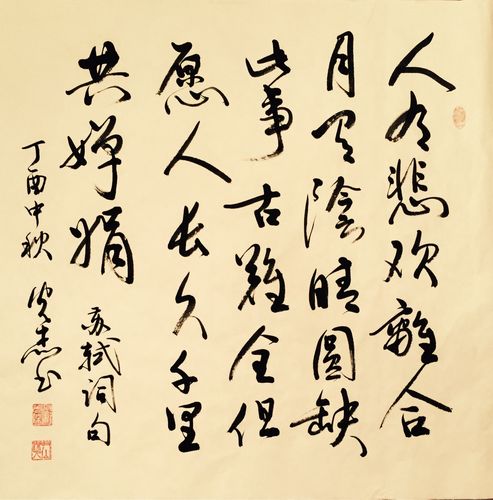 人有悲欢離合
月有陰晴圓缺
此事古難全但
愿人长久千里
共婵娟
苏轼词句
丁酉中秋
杰书